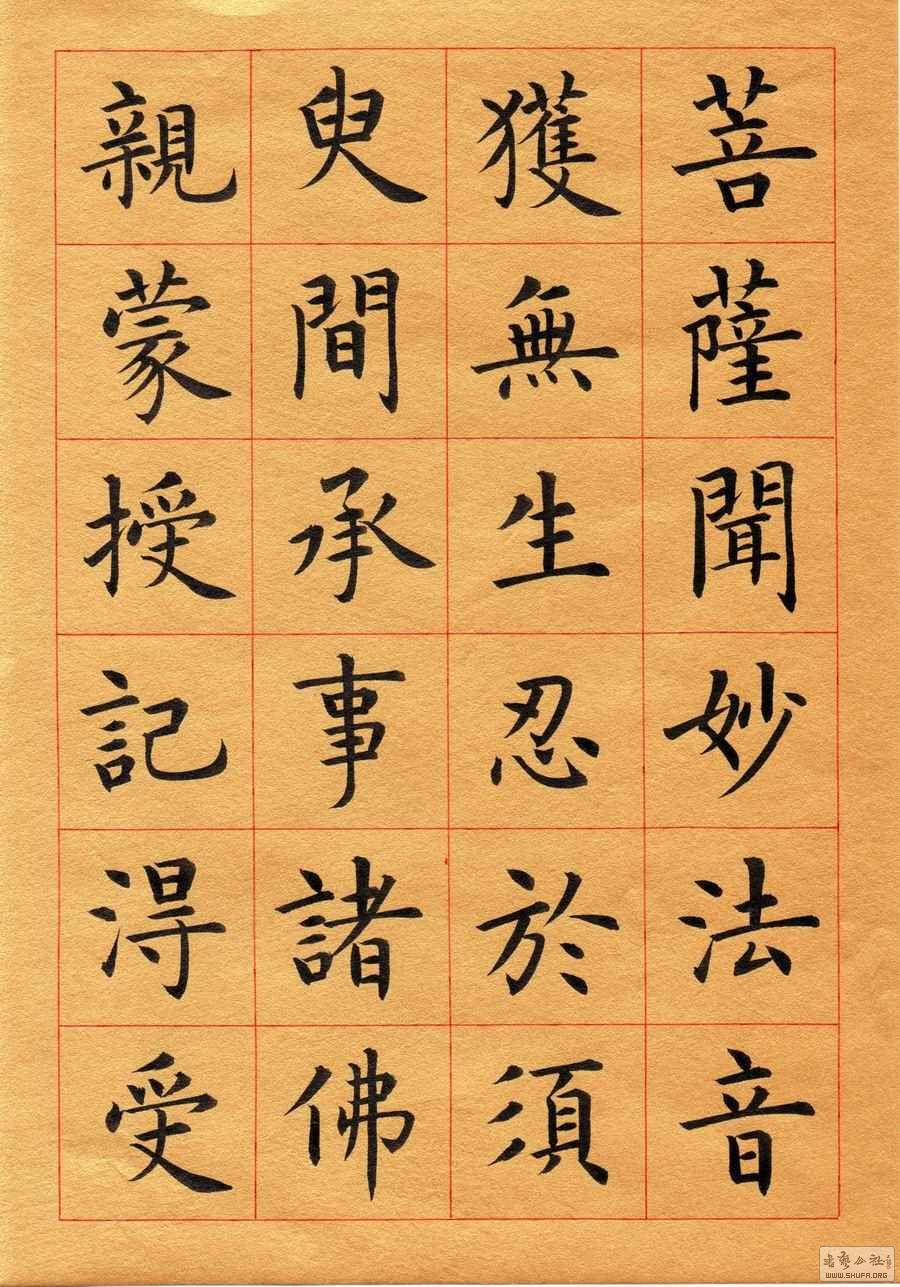 菩薩聞妙法音
獲無生忍於須
臾間承事諸佛
親蒙授記淂受
WWW.SHUFA.ORG